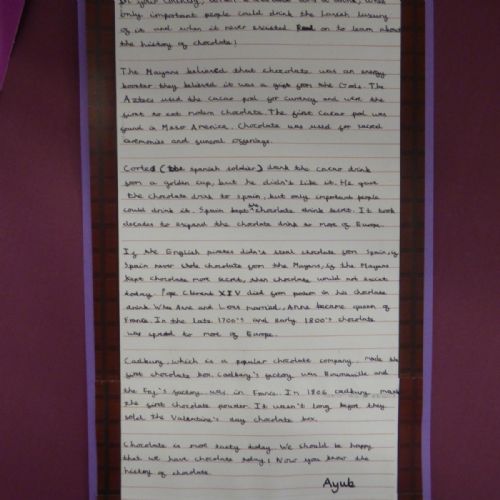 only important people could drink the luxury
of it and when it never existed Read on to learn about
the history of chocolate!
The Mayans believed that chocolate was an energy
booster they believed it was a gift from the Gods. The
Aztecs used the cacao pod for currency and were the
first to eat modern chocolate. The first cacao pod was
found in Meso America. Chocolate was used for sacred
ceremonies and funeral offerings.
Cortes (the spanish soldier) drank the cacao drink
from a golden cup, but he didn't like it. He gave
the chocolate drink to spain, but only important people
could drink it. Spain kept the chocolate drink secret. It took
decades to expand the chocolate drink to more of Europe.
If the English pirates didn't steal chocolate from Spain, if
Spain never stole chocolate from the Mayans, if the Mayans
kept chocolate more secret, then chocolate would not exist
today. Pope Clement XIV died from poison in his choclate
drink. When Ane and Louis married, Anne became queen of
France. In the late 1700's and early 1800's chocolate
was spread to more of Europe.
Cadbury, which is a popular chocolate company, made the
first chocolate box. Cadbury's factory was Bournville and
the Fry's factory was in France. In 1806 cadbury made
the first chocolate powder. It wasn't long before they
sold the Valentine's day chocolate box.
Chocolate is more tasty today. We should be happy
that we have chocolate today! Now you know the
history of chocolate.
Ayub